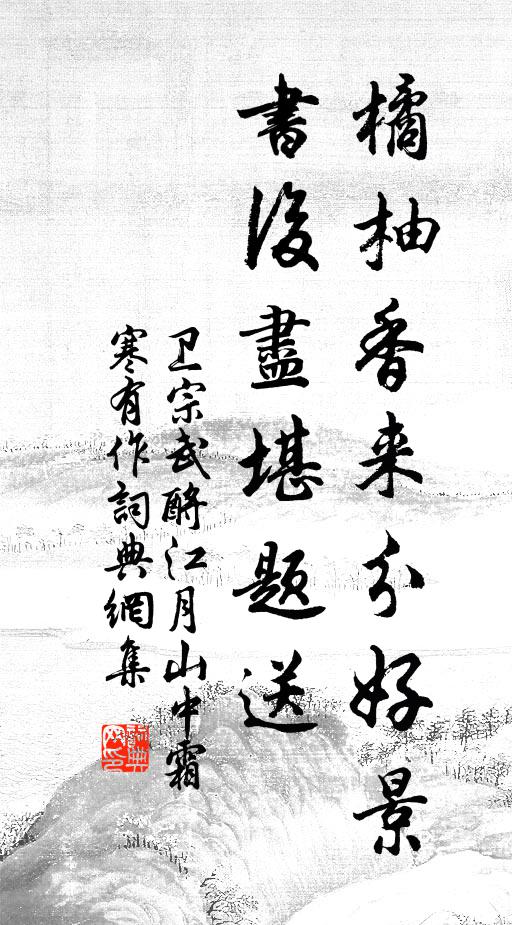 橘柚香来分好景
書後盡堪題送
卫宗武酹江月山中霜
寒有作詞典網集